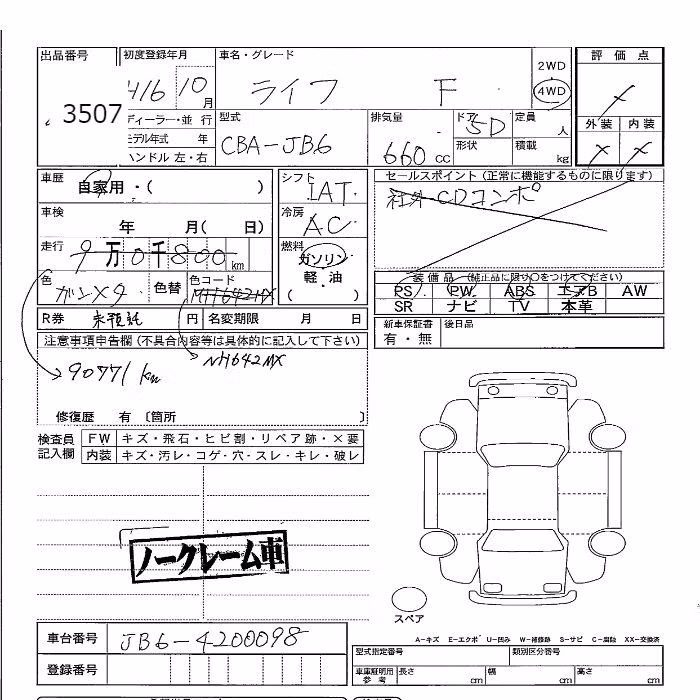 出品番号 初度登録年月 車名・グレード 評価点
3507 H16 10月 ライフ F 2WD 4WD
ディーラー・並行 型式 排気量 ドア 5D 定員 人 外装 内装
モデル年式 年 CBA-JB6 660 cc 形状 積載 kg
ハンドル 左・右
車歴 自家用・( ) シフト IAT セールスポイント (正常に機能するものに限ります)
車検 年 月( 日) 冷房 AC 社外CDコンポ
走行 9万0千800 km 燃料 ガソリン 軽・油 ( )
色 ガンメタ 色替 色コード NH642MX
装備品 (純正品に限り○をつけてください)
PS PW ABS エアB AW
SR ナビ TV 本革
R券 未預託 円 名変期限 月 日 新車保証書 後日品
有・無
注意事項申告欄 (不具合内容等は具体的に記入して下さい)
NH642MX
90771 km
修復歴 有 〔箇所 〕
検査員 記入欄 FW キズ・飛石・ヒビ割・リペア跡・×要
内装 キズ・汚レ・コゲ・穴・スレ・キレ・破レ
ノークレーム車
スペア
A-キズ E-エクボ U-凹み W-補修跡 S-サビ C-腐蝕 XX-交換済
車台番号 JB6-4200098
型式指定番号 類別区分番号
登録番号 車庫証明用参考 長さ cm 幅 cm 高さ cm